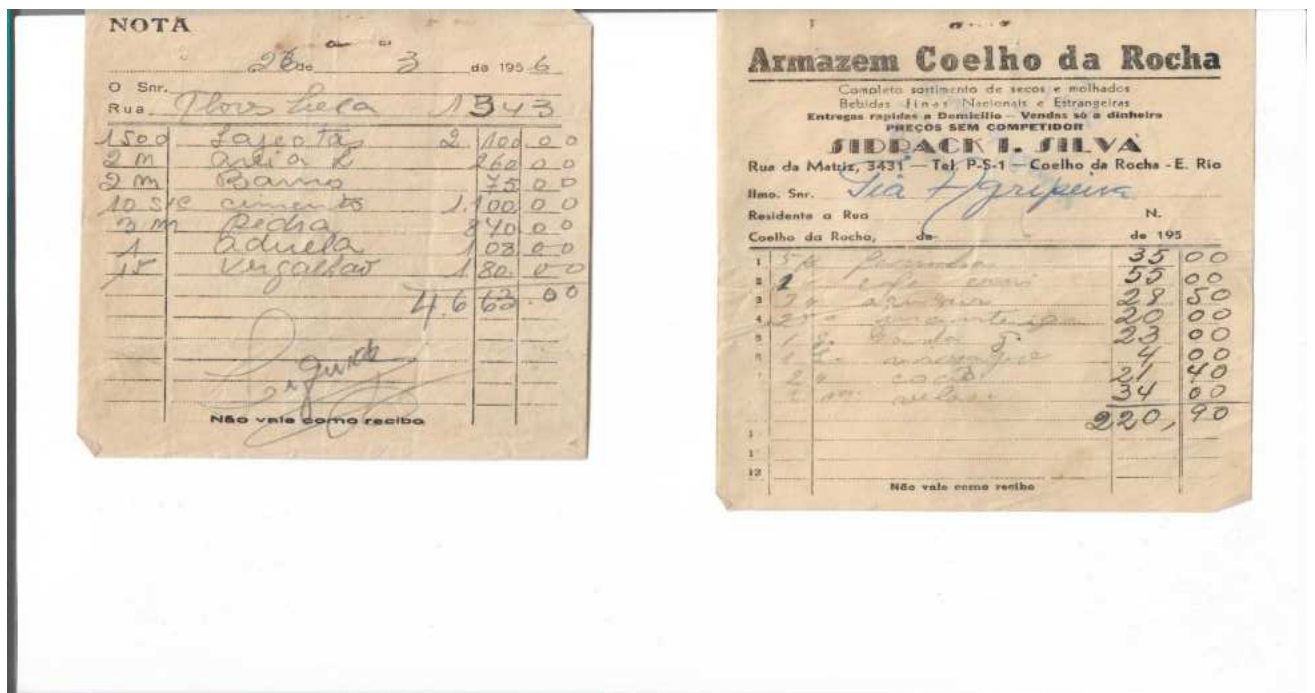 NOTA
26 de 3 de 1956
O Snr.
Rua Flores 1343
1500 Lajeotas 2.100.00
2 m areia L 260 00
2 m Barro 75 00
10 S/C cimento 1.100 00
3 m Pedra 840 00
1 aduela 108 00
15 Vergalhão 180.00
4.663.00
Não vale como recibo
Armazem Coelho da Rocha
Completo sortimento de secos e molhados
Bebidas Finas Nacionais e Estrangeiras
Entregas rapidas a Domicilio - Vendas só a dinheiro
PREÇOS SEM COMPETIDOR
SIDRACK I. SILVA
Rua da Matriz, 3431 — Tel. P-S-1 — Coelho da Rocha - E. Rio
Ilmo. Snr. Sia Agripina
Residente a Rua N.
Coelho da Rocha, de de 195
1 5 k 35 00
2 1 " cafe 55 00
3 28 50
4 manteiga 20 00
5 1 23 00
6 1 4 00
2 " coco 21 40
2 34 00
220,90
12
Não vale como recibo